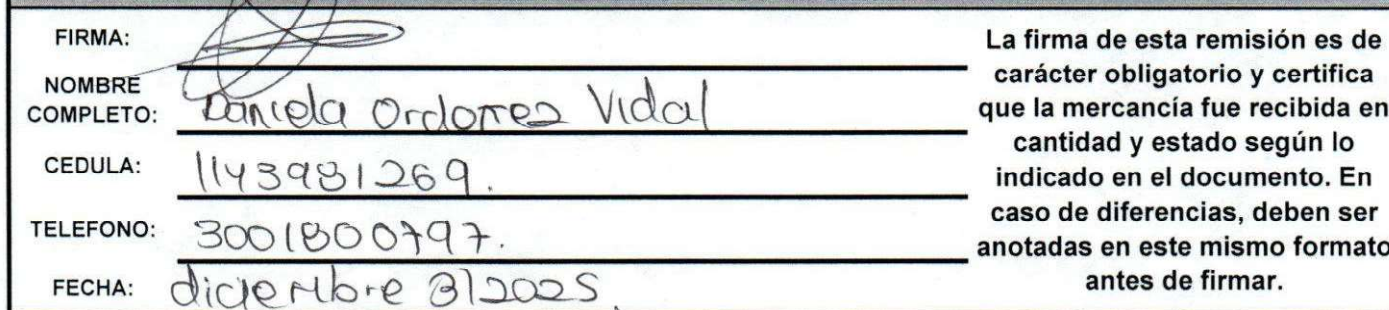 FIRMA:
NOMBRE COMPLETO: Daniela Ordoñez Vidal
CEDULA: 1143981269.
TELEFONO: 3001800797.
FECHA: diciembre 3|2025
La firma de esta remisión es de
carácter obligatorio y certifica
que la mercancía fue recibida en
cantidad y estado según lo
indicado en el documento. En
caso de diferencias, deben ser
anotadas en este mismo formato
antes de firmar.